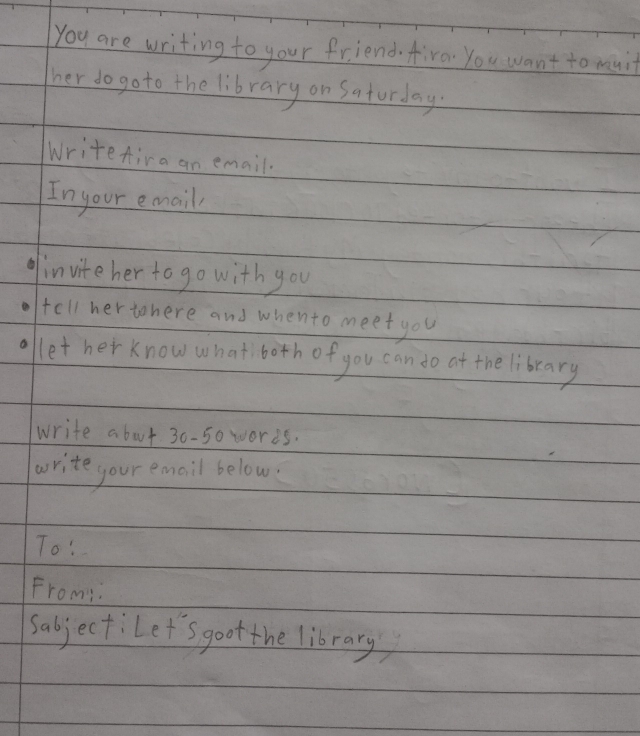 You are writing to your friend. Aira. You want to muit
her do goto the library on Saturday.
Write Aira an email.
In your email,
• invite her to go with you
• tell her where and when to meet you
• let her know what both of you can do at the library
write abut 30-50 words.
write your email below.
To:
From:
Sabject: Let's goot the library